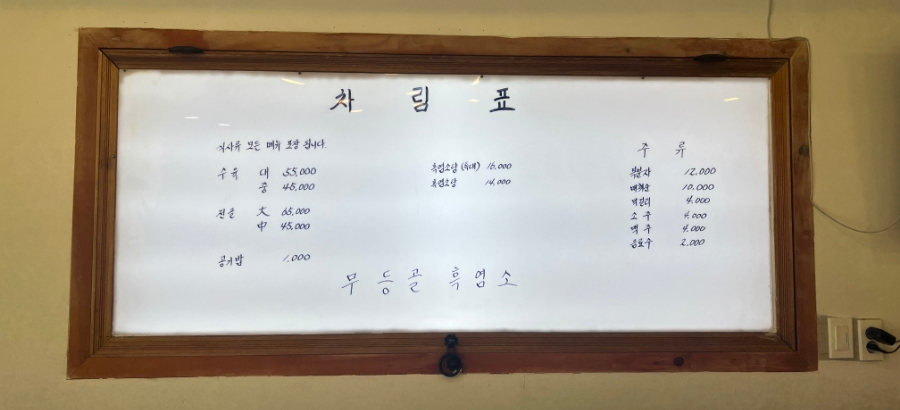 차림표
식사류 모든 메뉴 포장 됩니다.
수육 대 55,000
중 45,000
전골 大 65,000
中 45,000
공기밥 1,000
흑염소탕 (특대) 16,000
흑염소탕 14,000
주류
복분자 12,000
매취순 10,000
막걸리 4,000
소주 4,000
맥주 4,000
음료수 2,000
무등골 흑염소